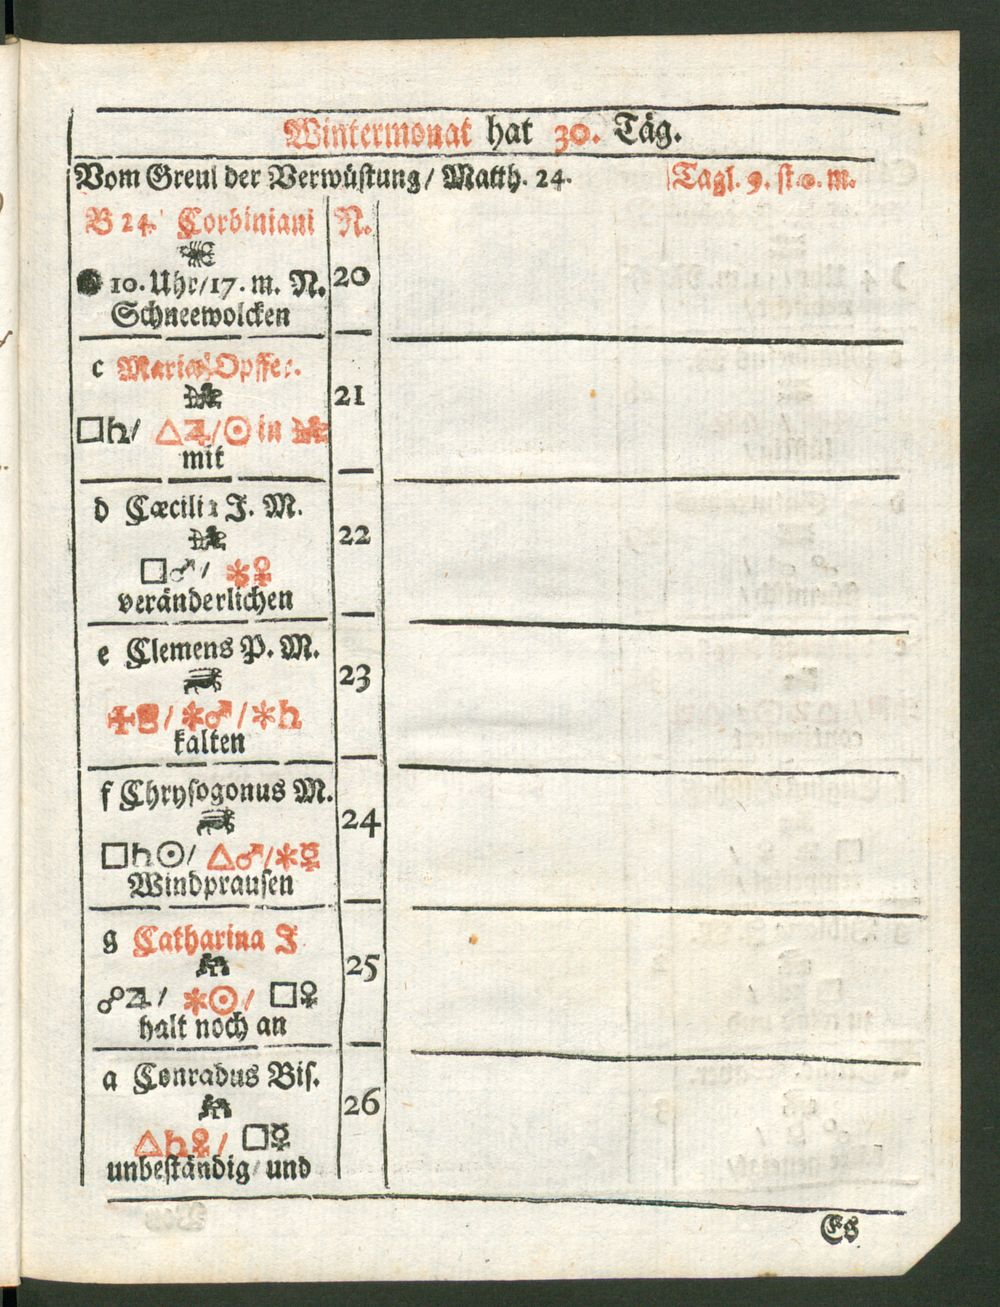 Wintermonat hat 30. Täg.
Vom Greul der Verwüstung / Matth. 24.
Tagl. 9. st. 0. m.
B 24. Corbiniani N.
♏
● 10. Uhr/17. m. N. 20
Schneewolcken
c Mariæ Opffer.
♐ 21
□♄/ △♃/☉ in ♐
mit
d Cæcilia J. M.
♐ 22
□♂/ ✱♀
veränderlichen
e Clemens P. M.
♑ 23
/✱♂/✱♄
kalten
f Chrysogonus M.
♑ 24
□♄☉/ △♂/✱☿
Windprausen
g Catharina J.
♒ 25
☍♃/ ✱☉/ □♀
halt noch an
a Conradus Bis.
♒ 26
△♄♀/ □☿
unbeständig/ und
Es